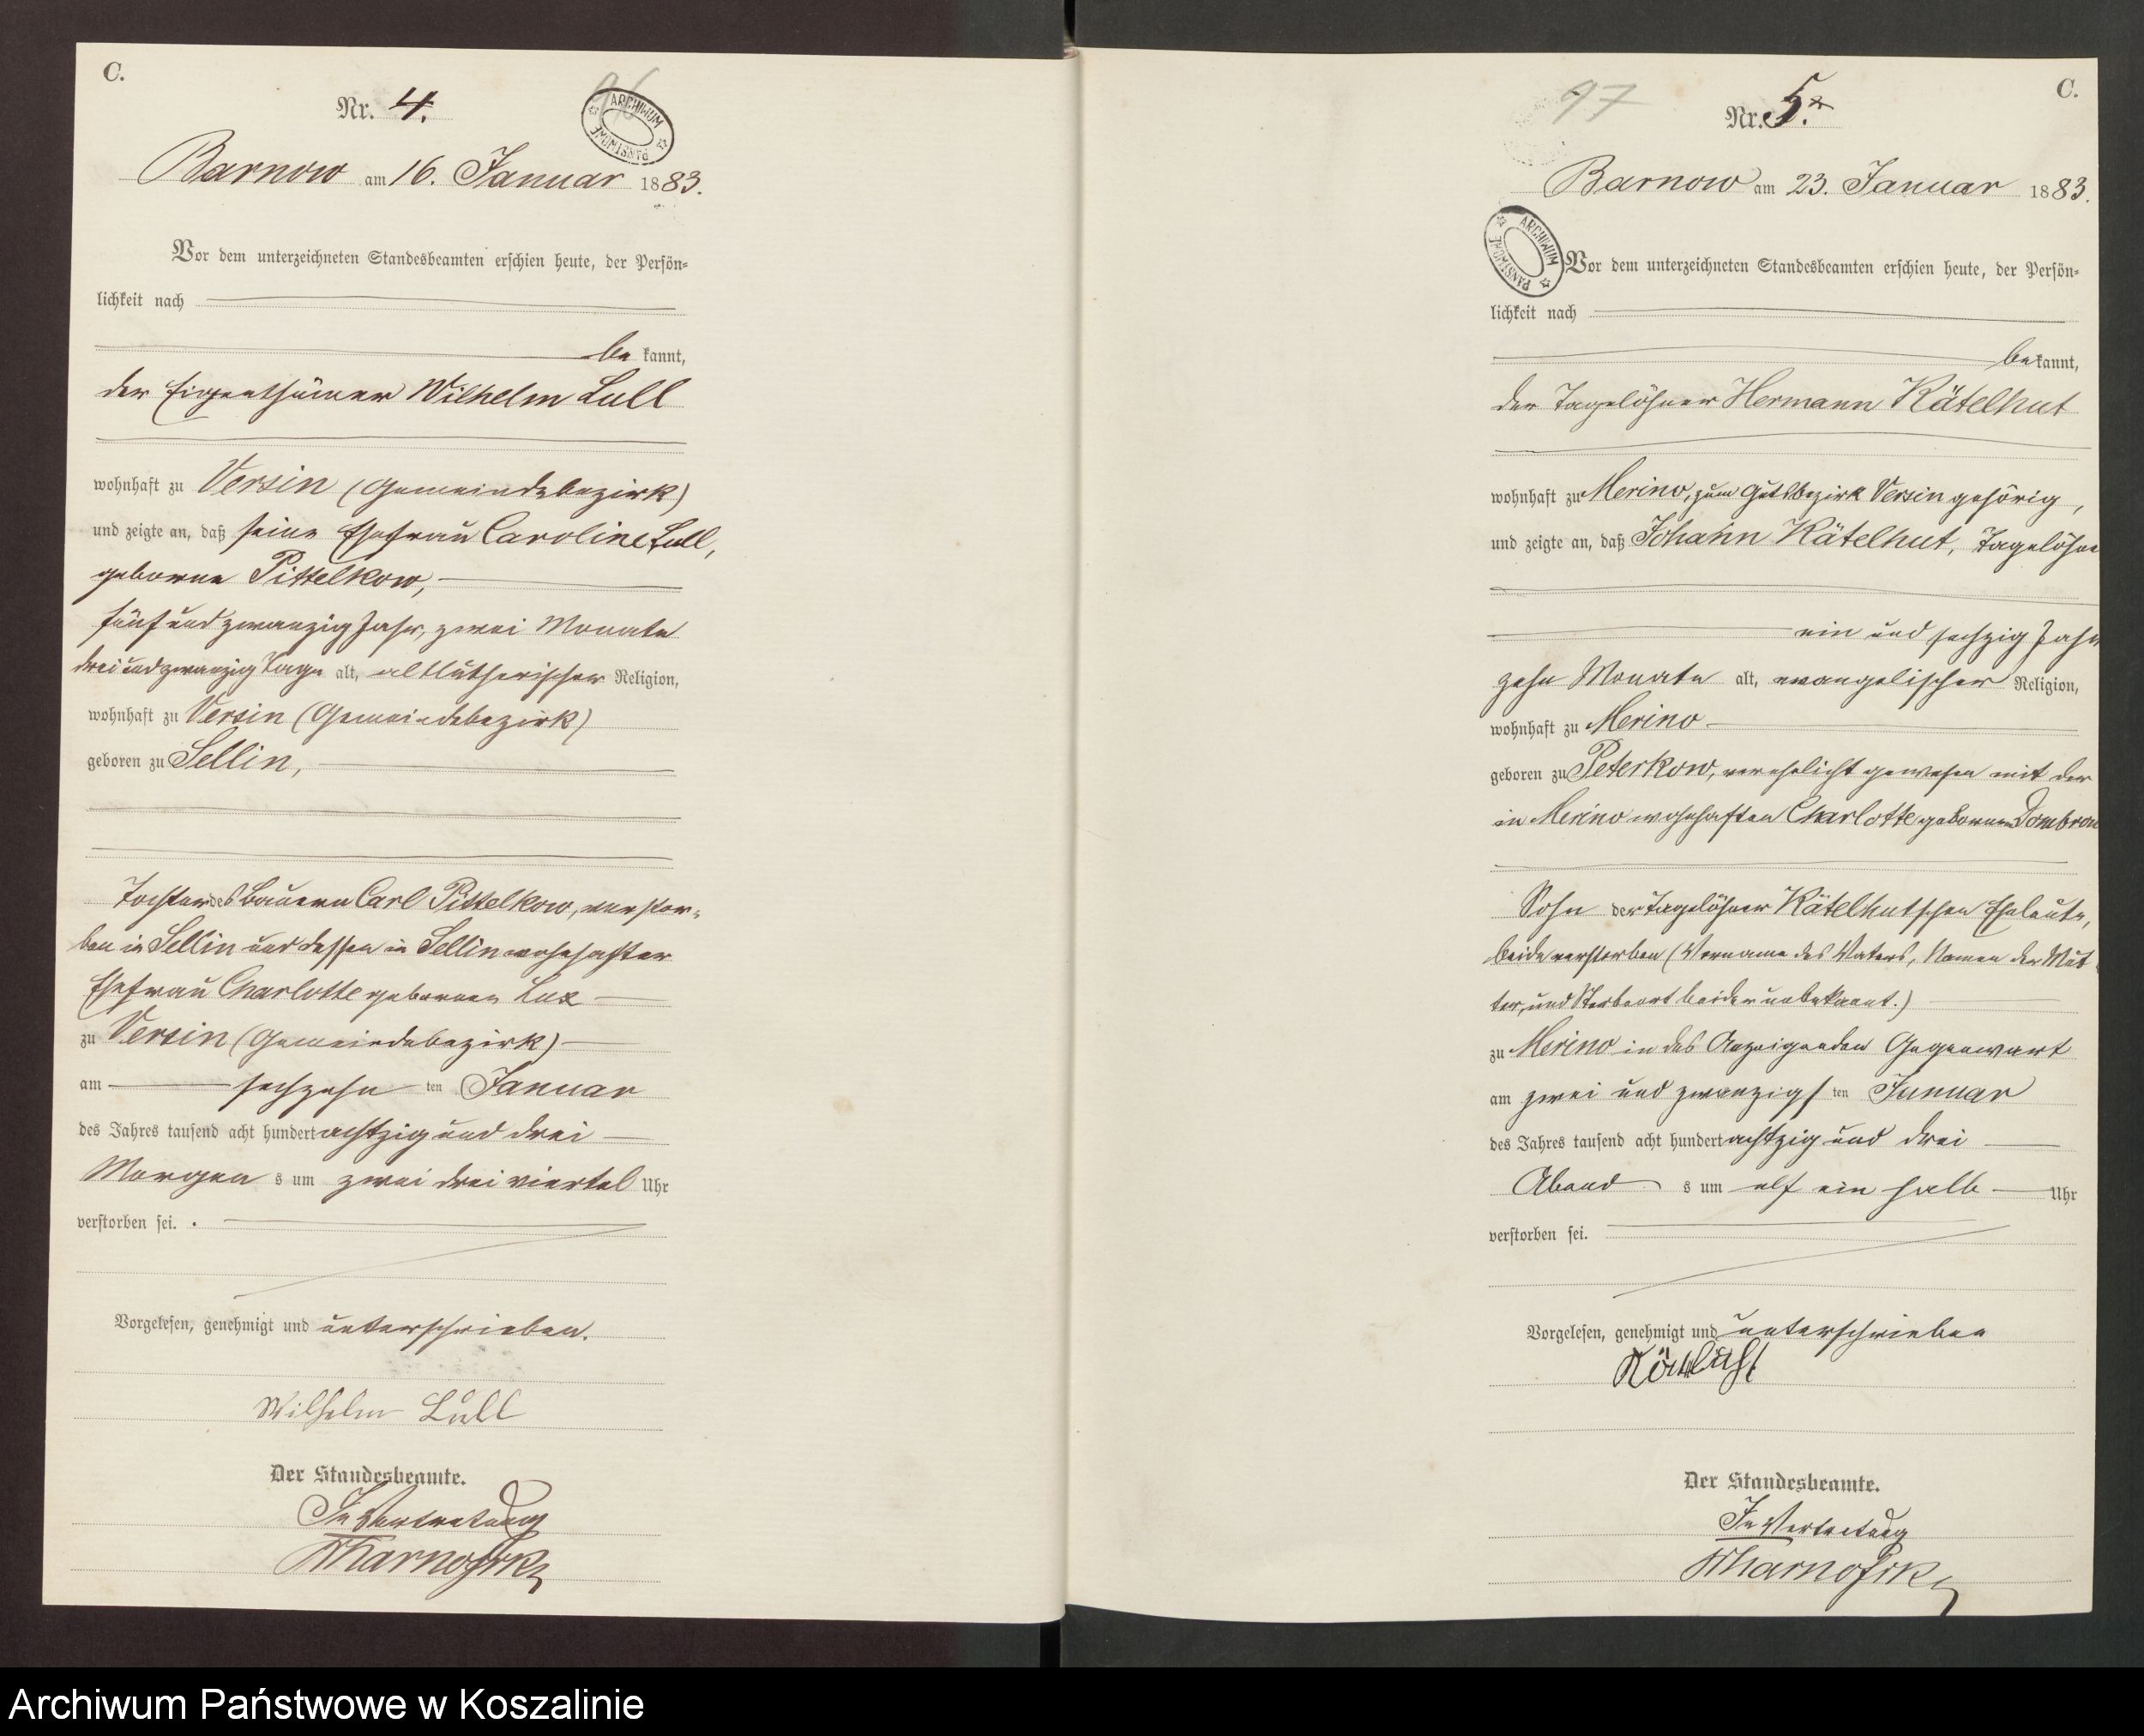 C.
96
Nr. 4.
ARCHIWUM PAŃSTWOWE
Barnow am 16. Januar 1883.
Vor dem unterzeichneten Standesbeamten erschien heute, der Persön-
lichkeit nach
be kannt,
der Eigenthümer Wilhelm Lull
wohnhaft zu Versin (Gemeindebezirk)
und zeigte an, daß seine Ehefrau Caroline Lull,
geborne Pittelkow,
fünf und zwanzig Jahr, zwei Monate
drei und zwanzig Tage alt, altlutherischer Religion,
wohnhaft zu Versin (Gemeindebezirk)
geboren zu Sellin,
Tochter des Bauern Carl Pittelkow, verstor-
ben in Sellin und dessen in Sellin wohnhafter
Ehefrau Charlotte gebornen Lux
zu Versin (Gemeindebezirk)
am sechzehn ten Januar
des Jahres tausend acht hundert achtzig und drei
Morgen s um zwei drei viertel Uhr
verstorben sei.
Vorgelesen, genehmigt und unterschrieben.
Wilhelm Lull
Der Standesbeamte.
In Vertretung
97
C.
Nr. 5.
Barnow am 23. Januar 1883.
ARCHIWUM PAŃSTWOWE
Vor dem unterzeichneten Standesbeamten erschien heute, der Persön-
lichkeit nach
be kannt,
der Tagelöhner Hermann Kätelhut
wohnhaft zu Merino, zum Gutsbezirk Versin gehörig,
und zeigte an, daß Johann Kätelhut, Tagelöhner
ein und sechzig Jahr
zehn Monate alt, evangelischer Religion,
wohnhaft zu Merino
geboren zu Peterkow, verehelicht gewesen mit der
in Merino wohnhaften Charlotte gebornen Dombrow
Sohn der Tagelöhner Kätelhutschen Eheleute,
beide verstorben (Vorname des Vaters, Namen der Mut-
ter, und Sterbeort beider unbekannt.)
zu Merino in des Anzeigenden Gegenwart
am zwei und zwanzigs ten Januar
des Jahres tausend acht hundert achtzig und drei
Abend s um elf ein halb Uhr
verstorben sei.
Vorgelesen, genehmigt und unterschrieben
Der Standesbeamte.
In Vertretung
Archiwum Państwowe w Koszalinie